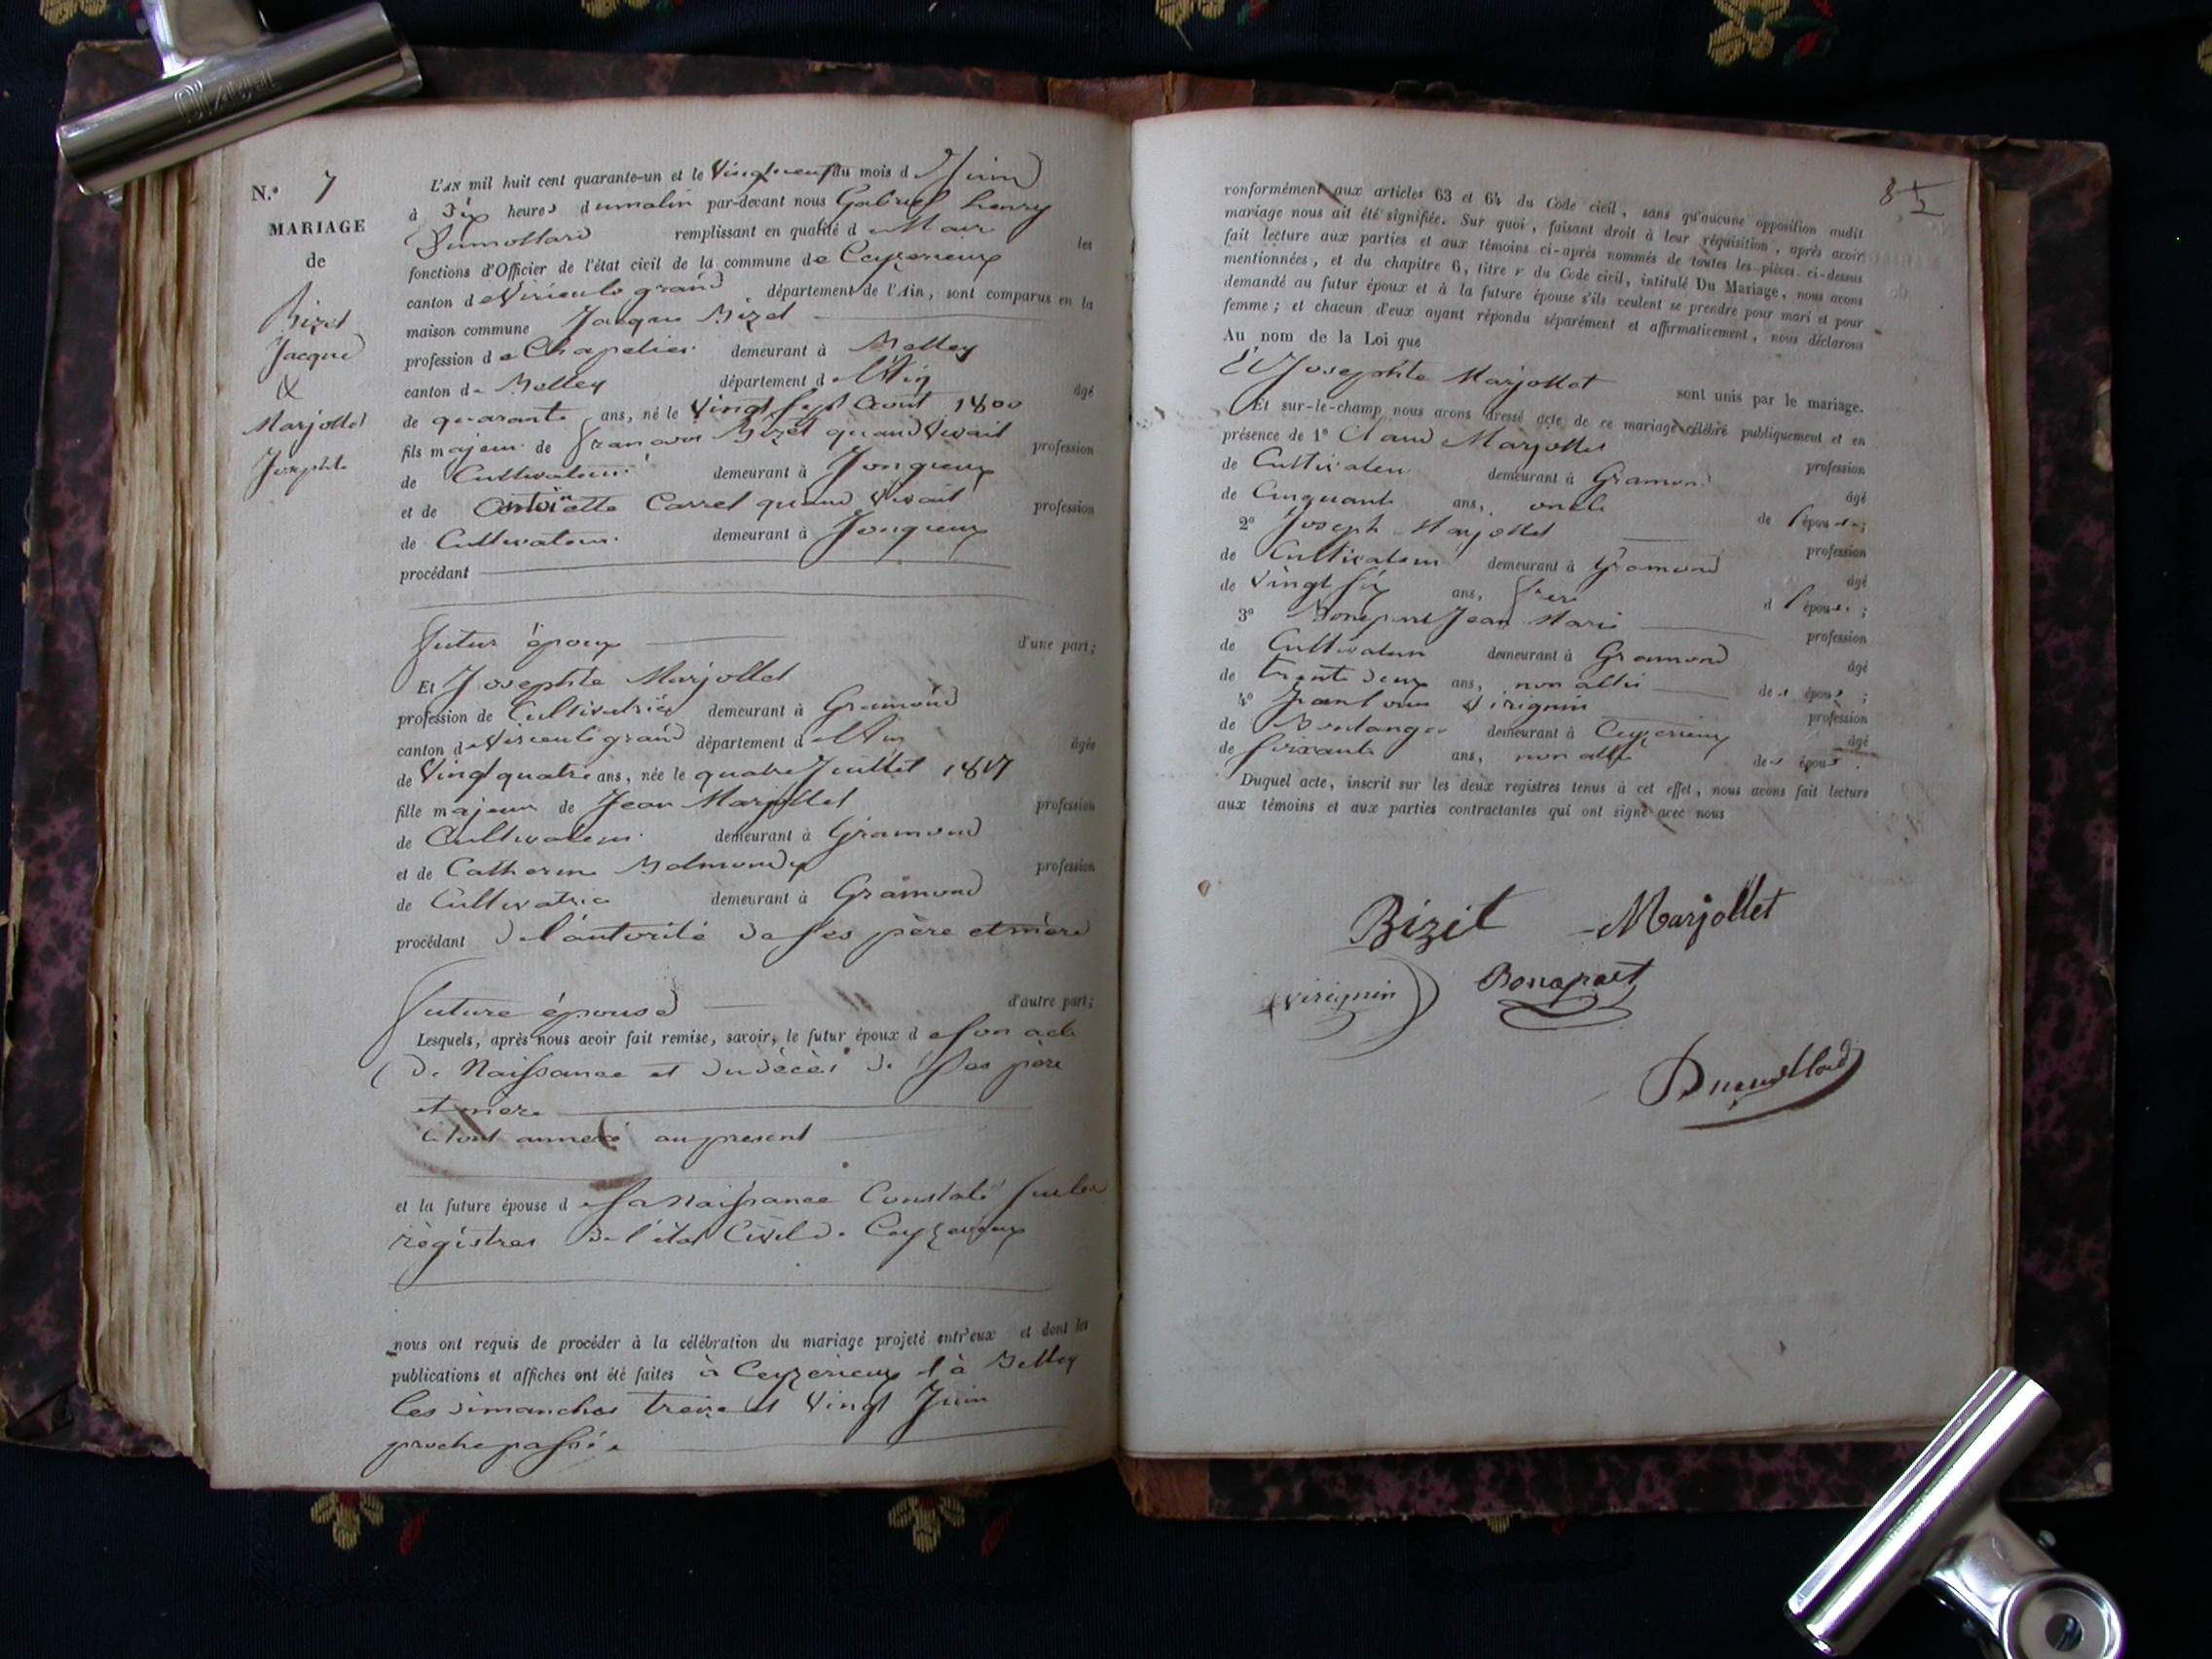 N.º 7
MARIAGE
de
Bizet
Jacque
&
Marjollet
Josephte
L'AN mil huit cent quarante-un et le Vingtneuf du mois d Juin
à Dix heures dumatin par-devant nous Gabriel henry
Dumollard remplissant en qualité de Mair les
fonctions d'Officier de l'état civil de la commune de Ceyzerieux
canton de Virieu le grand département de l'Ain, sont comparus en la
maison commune Jacque Bizet
profession de Chapelier demeurant à Belley
canton de Belley département de l'Ain âgé
de quarante ans, né le Vingt Sept Aout 1800
fils majeur de francois Bizet quand Vivait profession
de Cultivateur demeurant à Jongieux
et de Antoinette Carrel quand Vivait profession
de Cultivateur demeurant à Jongieux
procédant
futur époux d'une part;
Et Josephte Marjollet
profession de Cultivatrice demeurant à Gramond
canton de Virieu le grand département de l'Ain âgée
de Vingt quatre ans, née le quatre Juillet 1817
fille majeure de Jean Marjollet profession
de Cultivateur demeurant à Gramond
et de Catherine profession
de Cultivatrice demeurant à Gramond
procédant de l'autorité de ses père et mère
future épouse d'autre part;
Lesquels, après nous avoir fait remise, savoir, le futur époux de son acte
de Naissance et du décès de ses père
et mere
le tout annexé au present
et la future épouse de sa Naissance Constaté sur les
règistres de l'état Civil de Ceyzerieux
nous ont requis de procéder à la célébration du mariage projeté entr'eux et dont les
publications et affiches ont été faites à Ceyzerieux & à Belley
les dimanches treize et Vingt Juin
proche passée
85
conformément aux articles 63 et 64 du Code civil, sans qu'aucune opposition audit
mariage nous ait été signifiée. Sur quoi, faisant droit à leur réquisition, après avoir
fait lecture aux parties et aux témoins ci-après nommés de toutes les pièces ci-dessus
mentionnées, et du chapitre 6, titre v du Code civil, intitulé Du Mariage, nous avons
demandé au futur époux et à la future épouse s'ils veulent se prendre pour mari et pour
femme; et chacun d'eux ayant répondu séparément et affirmativement, nous déclarons
Au nom de la Loi que
Et Josephte Marjollet sont unis par le mariage.
Et sur-le-champ nous avons dressé acte de ce mariage célébré publiquement et en
présence de 1º Claud Marjollet profession
de Cultivateur demeurant à Gramond âgé
de Cinquante ans, oncle de l'épouse;
2º Joseph Marjollet profession
de Cultivateur demeurant à Gramond âgé
de Vingt Six ans, frere d l'épouse;
3º Bonapart Jean Marie profession
de Cultivateur demeurant à Gramond âgé
de trente deux ans, non allié des époux;
4º francois Virignin profession
de Boulanger demeurant à Ceyzerieux âgé
de soixante ans, non allié des époux.
Duquel acte, inscrit sur les deux registres tenus à cet effet, nous avons fait lecture
aux témoins et aux parties contractantes qui ont signé avec nous
Bizet Marjollet
Virignin Bonapart
Dumollard